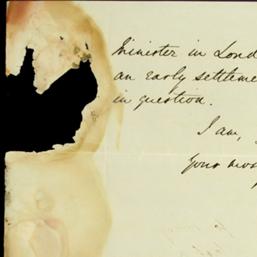 Minister in Lond
an early settleme
in question.
I am,
Your mos